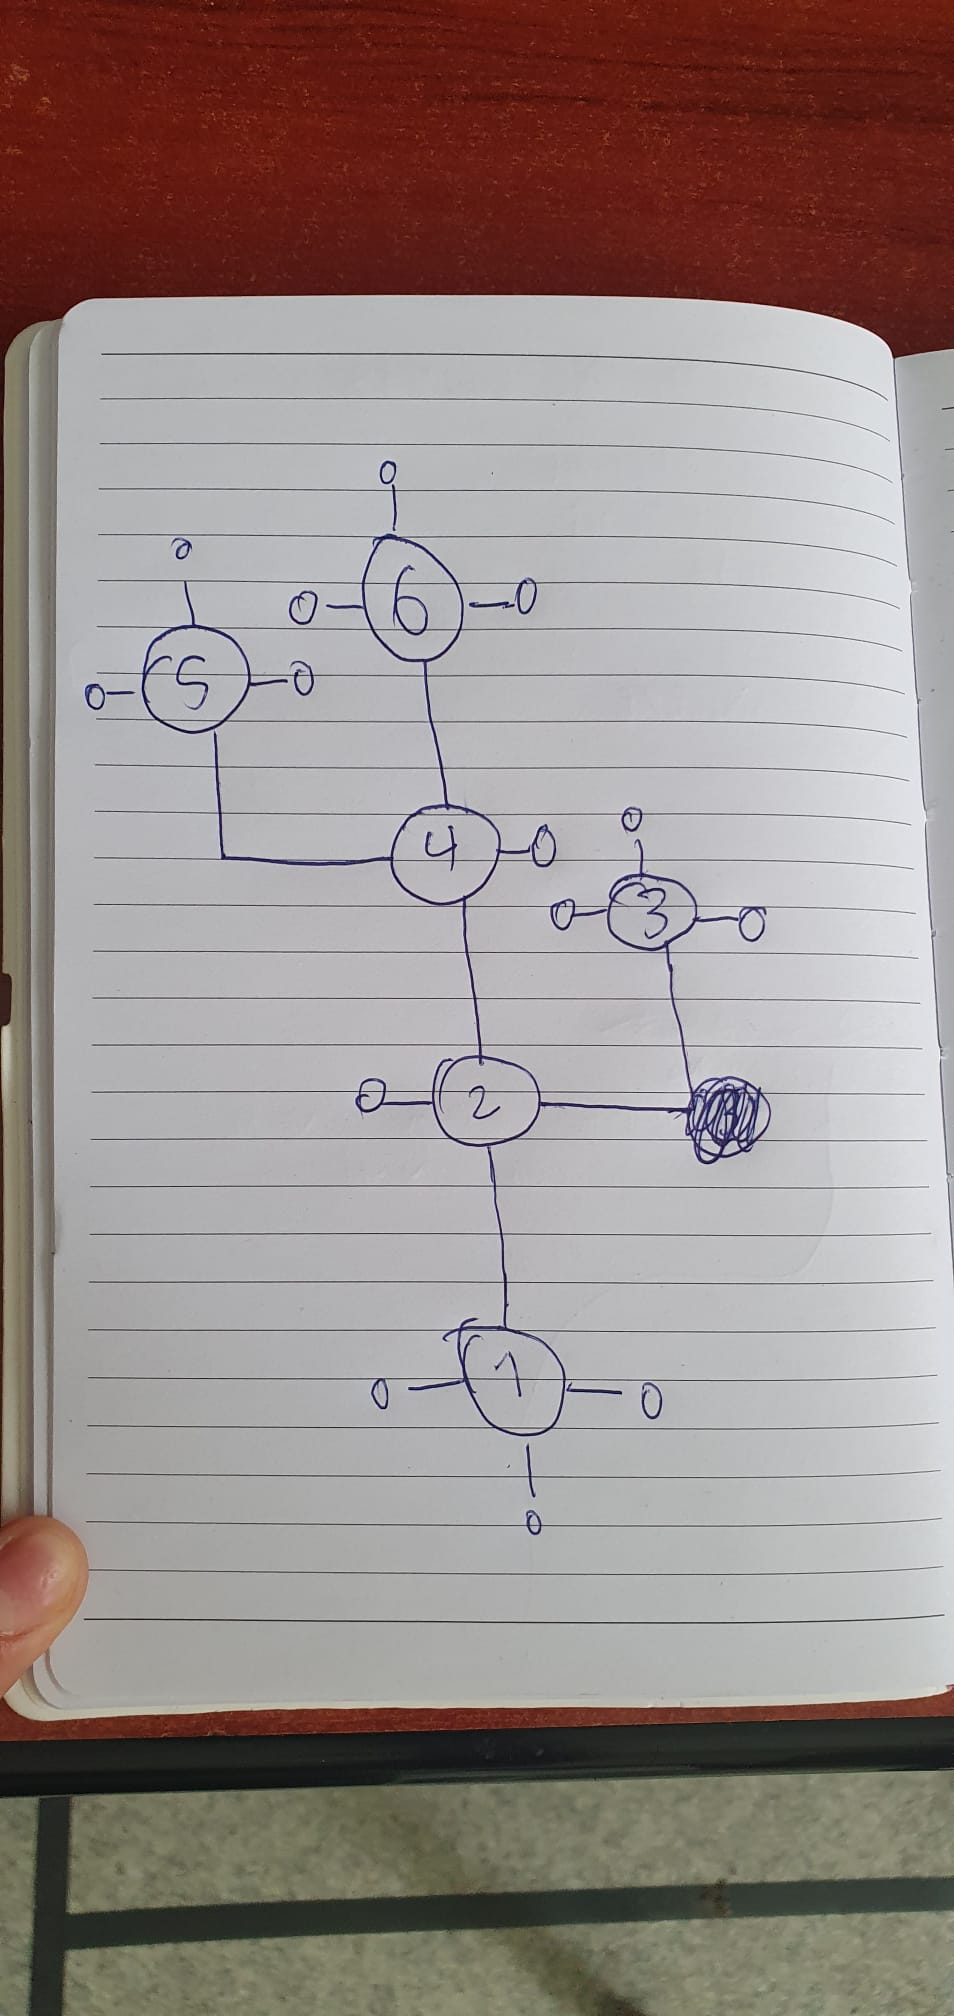 0
0
0 6 0
0 5 0
0
4 0
0 3 0
0 2
0 1 0
0